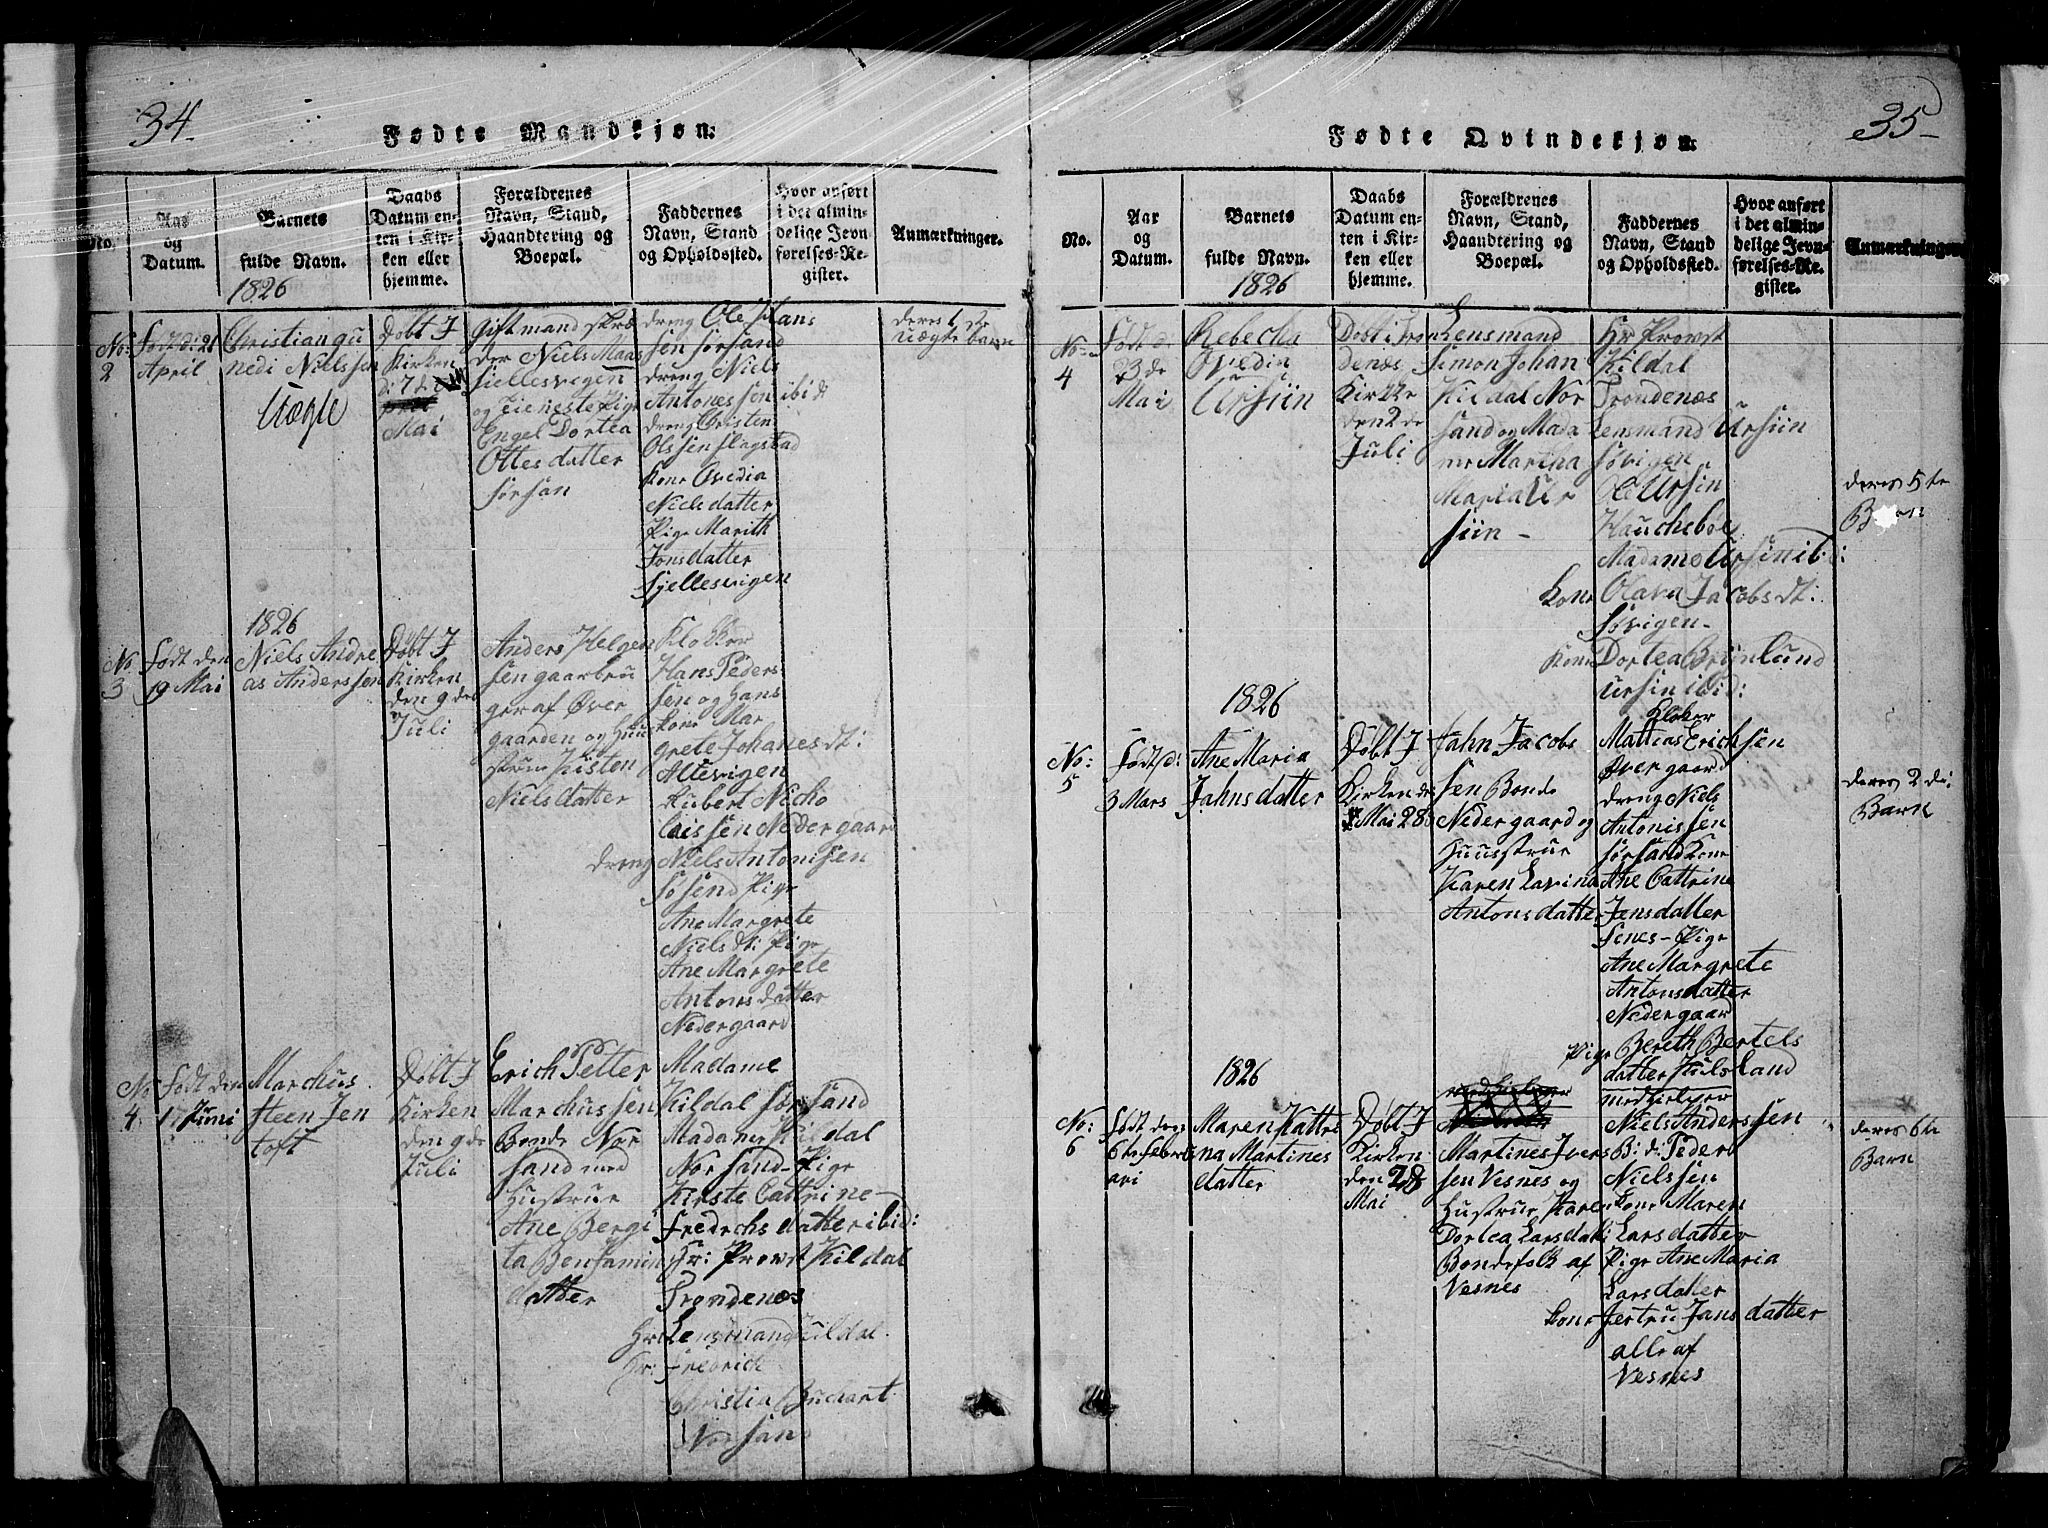 34
Fødte Mandkjøn.
No.
Aar og Datum.
Barnets fulde Navn.
Daabs Datum enten i Kirken eller hjemme.
Forældrenes Navn, Stand, Haandtering og Boepæl.
Faddernes Navn, Stand og Opholdssted.
Hvor anført i det almindelige Jevnførelses-Register.
Anmærkninger.
1826
No:
2
Født d: 21
April
Christian gu
nedi Nielssen
Uægte
Døbt I
Kirken
Mai
Giftmand skræ
der Niels Maas
Fjellesvigen
og Tieneste Pige
Engel Dortea
Ottesdatter
Sørsan
dreng Ole Hans
sen Sørsand
dreng Niels
Antonessen ibid
dreng Christen
Olssen Slagstad
Kone Ovedia
Nielsdatter
Pige Marith
Jonsdatter
Fjellesvigen
deres 1 ste
uægte barn
1826
No
3
Født den
19 Mai
Niels Andre
as Anderssen
Døbt I
Kirken
den 9 de
Juli
Anders Helge
sen gaarbru
ger af Øver
gaarden og Huu
strue Kisten
Nielsdatter
Klokker
Hans Peders
sen og Hans
kone Mar
grete Johanesdt:
Altevigen
Hubert Nicho
laissen Nedergaard
dreng Niels Antonissen
Sø send Pige
Ane Margrete
Nielsdt: Pige
Ane Margrete
Antonsdatter
Nedergaard
No
4
Født den
17 Juni
Marchus
Steen Jen
toft
Døbt I
Kirken
den 9 de
Juli
Erich Petter
Marchussen
Bonde Nor
sand med
Hustrue
Ane Bergi
ta Benjamin
datter
Madame
Kildal Sørsand
Madame Kildal
Norsand - Pige
Kirste Cattrine
Fredrchsdatter ibid:
Hr: Prowst Kildal
Trondenæs
Hr: Lensmand Kildal
Hr: Fredrich
Christia Buchart
Norsan
35
Fødte Qvindekjøn.
No.
Aar og Datum.
Barnets fulde Navn.
Daabs Datum enten i Kirken eller hjemme.
Forældrenes Navn, Stand, Haandtering og Boepæl.
Faddernes Navn, Stand og Opholdssted.
Hvor anført i det almindelige Jevnførelses-Register.
Anmærkninger
1826
No:
4
Født d:
23 de
Mai
Rebecha
Ovedia
Ursiin
Døbt i Tron
denæs
Kirke
den 2 de
Juli
Lensmand
Simon Johan
Kildal Nor
sand og Mada
me Martha
Maria Ur
siin -
Hr Prowst
Kildal
Trondenæs
Lensmand Ursiin
Søvigen
Ole Ursin
Hauchebøe
Madame Ursin ib: d:
Kone Olava Jacobsdt:
Søvigen -
Kone Dortea Brynlund
Ursin ibid:
deres 5 te
Barn
1826
No:
5
Født d:
3 Mars
Ane Maria
Jahnsdatter
Døbt I
Kirken de
Mai 28
Jahn Jacobs
sen Bonde
Nedergaard og
Huusstrue
Karen Lavina
Antonsdatter
Kloker
Mattias Erichsen
Øvergaard
dreng Niels
Antonissen
Sørsand Kone
Ane Cattrine
Jensdatter
Senes - Pige
Ane Margrete
Antonsdatter
Nedergaar
Pige Bereth Bertels
datter Hulsland
deres 2 de:
Barn
1826
No:
6
Født den
6 te Febru
ari
Maren Kattri
na Martines
datter
Døbt I
Kirken
den 28
Mai
Martines Ivers
sen Vesnes og
Hustrue Karen
Dortea Larsdatt
Bondefolk af
Vesnes
medhielper
Niels Anderssen
B: d: Peder
Nielssen
Kone Maren
Larsdatter
Pige Ane Maria
Larsdatter
Kone Jertru Jansdatter
alle af
Vesnes
deres 6 te
Barn